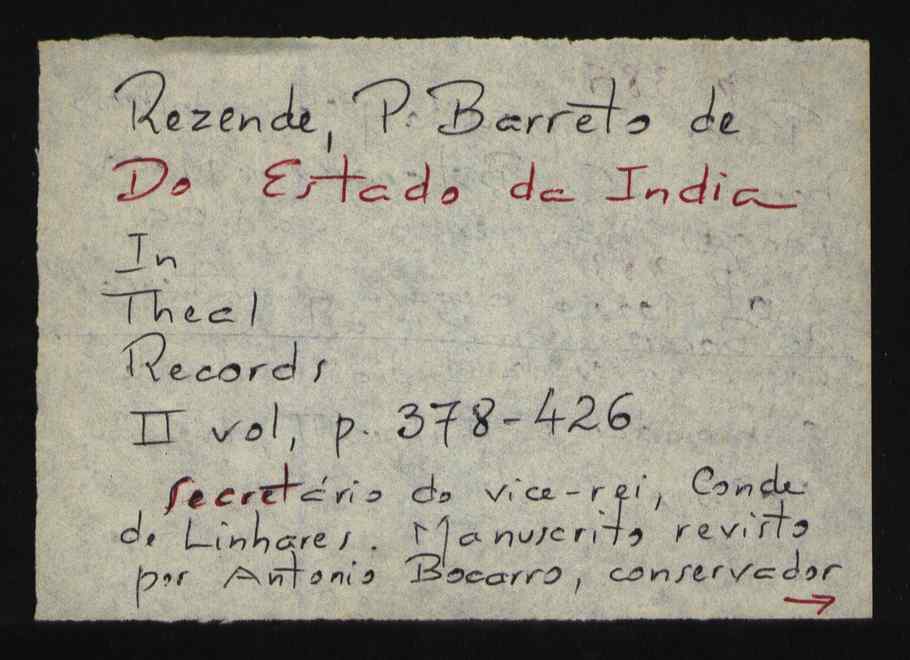 Rezende, P. Barreto de
Do Estado da India
In
Theal
Records
II vol, p. 378-426
secretário do vice-rei, Conde
de Linhares. Manuscrito revisto
por Antonio Bocarro, conservador
→